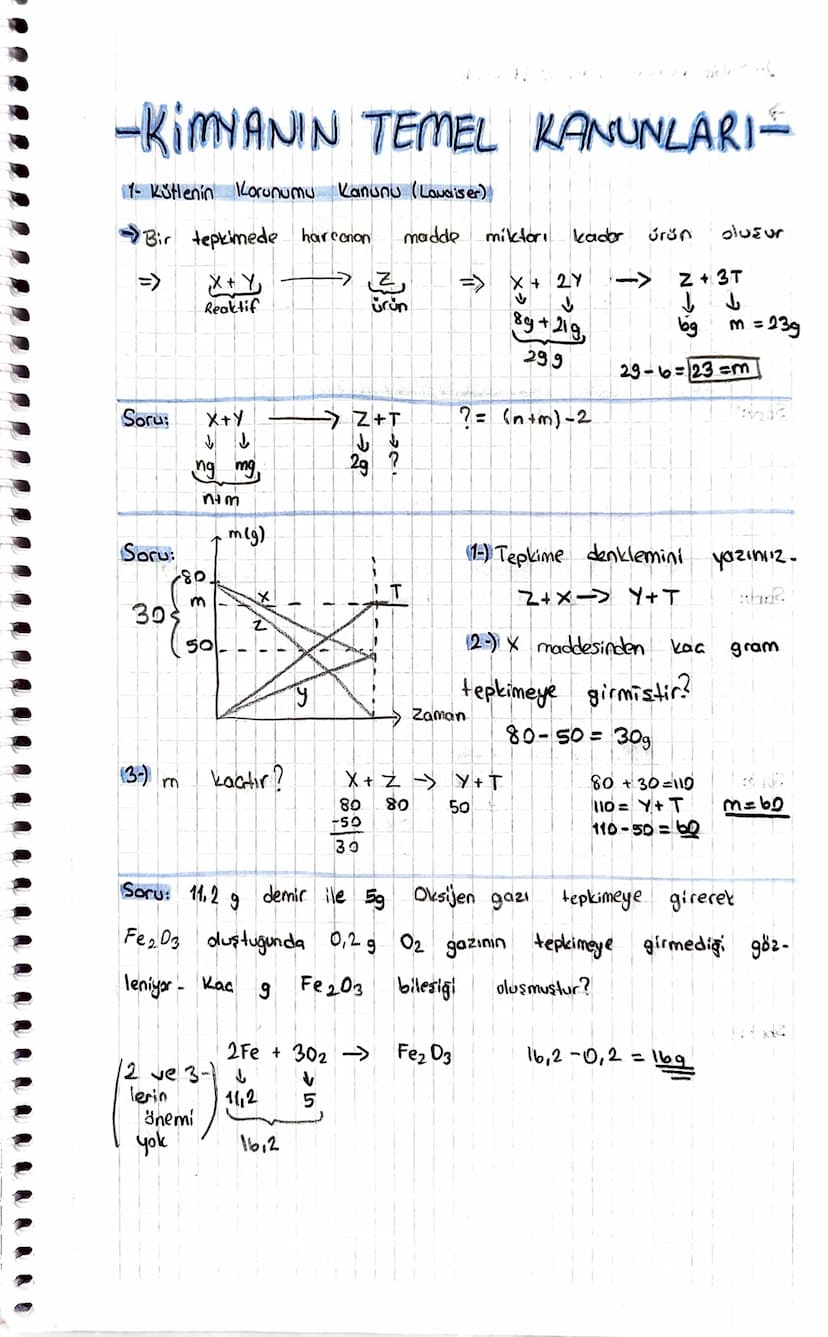 -KİMYANIN TEMEL KANUNLARI-
1- Kütlenin Korunumu Kanunu (Lavaiser)
→ Bir tepkimede harcanan madde miktarı kadar ürün oluşur
=> X + Y → Z => X + 2Y → Z + 3T
Reaktif ürün ↓ ↓ ↓ ↓
8g + 21g 6g m = 23g
29g
29-6 = 23 = m
Soru: X+Y → Z+T ? = (n+m)-2
↓ ↓ ↓ ↓
ng mg 2g ?
n+m
Soru: m(g)
80
m
30
50
X
Z
T
y
Zaman
1-) Tepkime denklemini yazınız-
Z+X → Y+T
2-) X maddesinden kac gram
tepkimeye girmiştir?
80-50 = 30g
3-) m kaçtır? X + Z → Y+T 80 + 30 = 110
80 80 50 110 = Y+T m=60
-50 110-50 = 60
30
Soru: 11,2 g demir ile 5g Oksijen gazı tepkimeye girerek
Fe2O3 oluştuğunda 0,2 g O2 gazının tepkimeye girmediği göz-
leniyor- Kac g Fe2O3 bileşiği oluşmuştur?
2Fe + 3O2 → Fe2O3 16,2 -0,2 = 16g
(2 ve 3-
lerin
önemi
yok)
↓ ↓
11,2 5
16,2